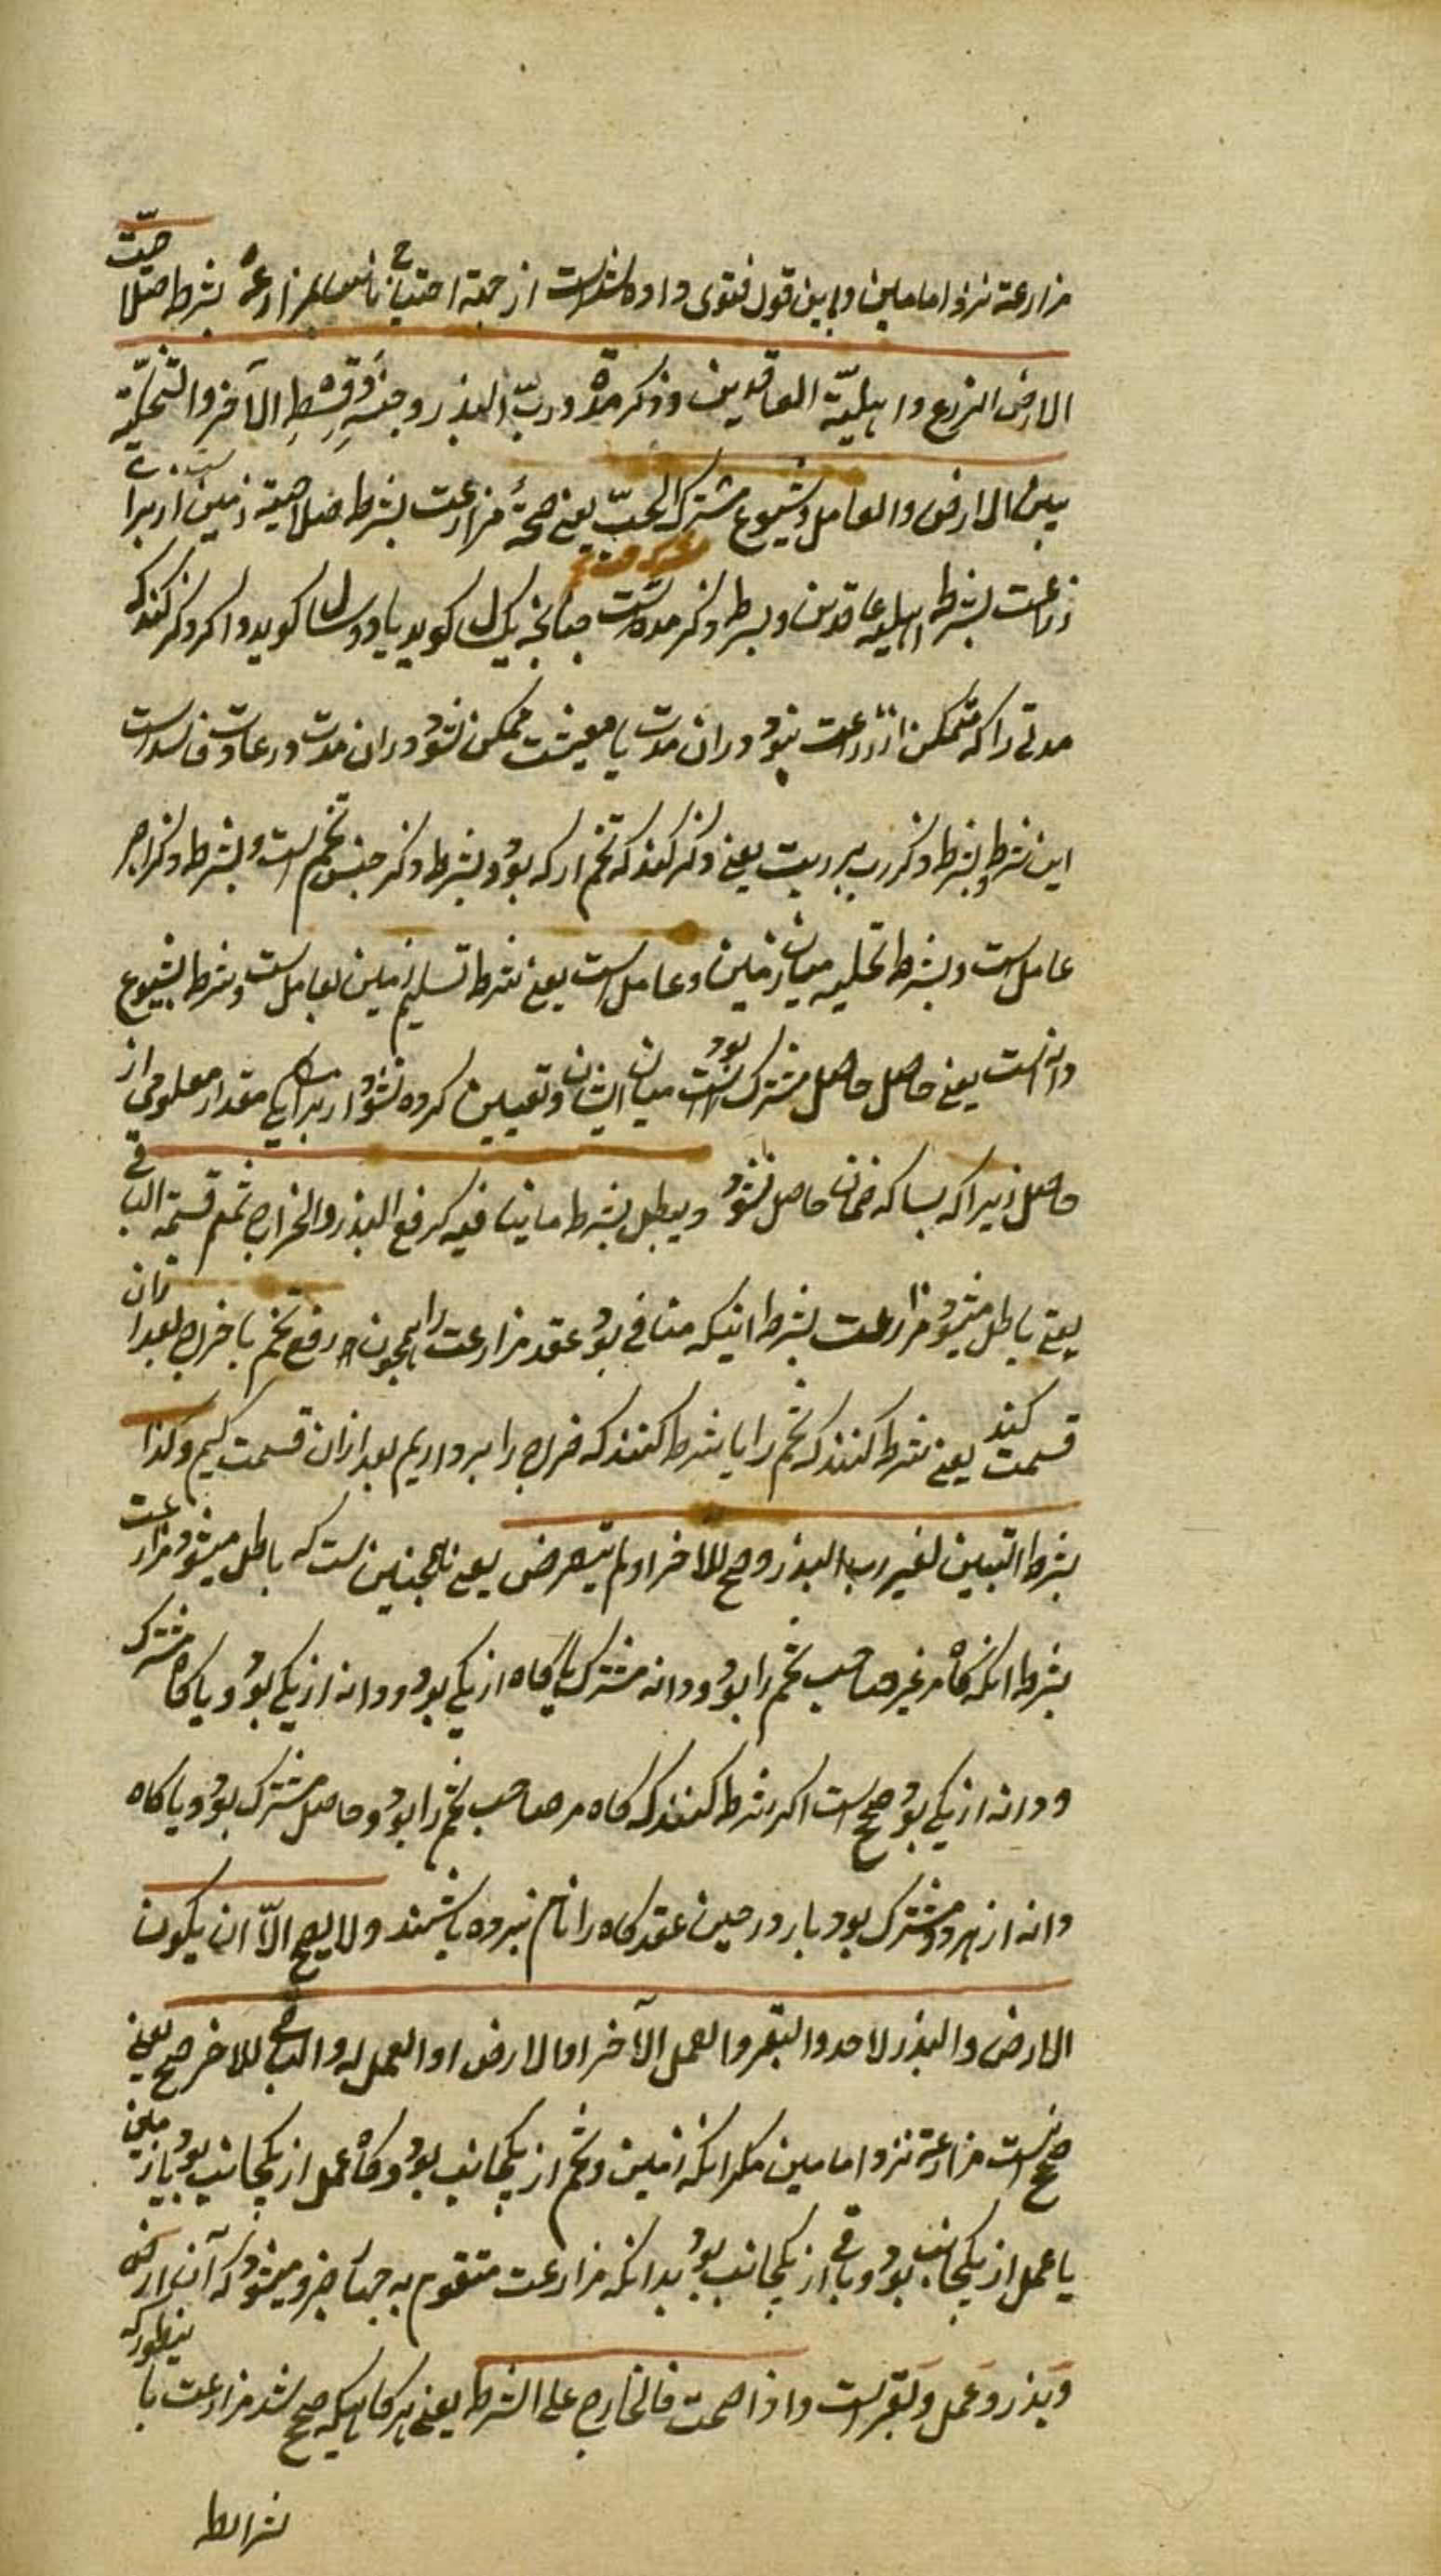 مزارعة نزد امامین و باین قول فتوی داده شدست از جهة احتیاج ناس بمزارعة بشرط صلاحیّت
الارض للزرع واهلیّة العاقدین وذکر مدة ورب البذر وجنسه وقسط الآخر والتخلیّة
بین الارض والعامل وشیوع مشترک الحبّ یعنی صحة مزارعت بشرط صلاحیة زمین از برای
زراعت بشرط اهلیة عاقدین و بشرط ذکر مدتست چنانچه یک سال کوید یا دو سال کوید و اکر ذکر کند که
مدتی را که متمکن از زراعت نبود دران مدت یا معیشت ممکن نشود دران مدت در عادت فاسدست
این شرط و بشرط ذکر رب بذرست یعنی ذکر کند که تخم از که بود و بشرط ذکر جنس تخم است و بشرط ذکر اجر
عامل است و بشرط تخلیه میان زمین و عامل است یعنی شرط تسلیم زمین بعامل است و شرط بشیوع
دانه است یعنی حاصل حاصل مشترک بود میان ایشان و تعیین کرده نشود از برای مقدار معلومی از
حاصل زیرا که بسا که ضمان حاصل نشود و یبطل بشرط ما ینافیه کرفع البذر والخراج ثم قسمة الباقی
یعنی باطل میشود مزارعت بشرط اینکه منافی بود عقد مزارعت را همچون رفع تخم یا خراج بعد ازان
قسمت کنند یعنی شرط کنند که تخم را یا شرط کنند که خراج را برداریم بعد ازان قسمت کنیم وکذا
بشرط التبین لغیر رب البذر وصح للآخر او لم یتعرض یعنی همچنین ست که باطل میشود مزارعت
بشرط انکه کاه مر غیر صاحب تخم را بود و دانه مشترک یا کاه از یکی بود و دانه از یکی بود و یا کاه مشترک
و دانه از یکی بود صحیح است اکر شرط کنند که کاه مر صاحب تخم را بود و حاصل مشترک بود و یا کاه
دانه از هر دو مشترک بود یا در حین عقد کاه را نام نبرده باشند ولا یصح الّا ان یکون
الارض والبذر لاحد والبقر والعمل الآخر او الارض او العمل له والباقی للآخر صح یعنی
صحیح است مزارعة نزد امامین مکر انکه زمین و تخم از یکجانب بود و کاو عمل از یکجانب بود یا زمین
یا عمل از یکجانب بود و باقی از یکجانب بود بدانکه مزارعت متقوم به چهار جزو میشود که آن ارض
و بذر و عمل و بقر است واذا صحت فالخارج علی الشرط یعنی هر کاهیکه صحیح شد مزارعت باینطور که
شرایط